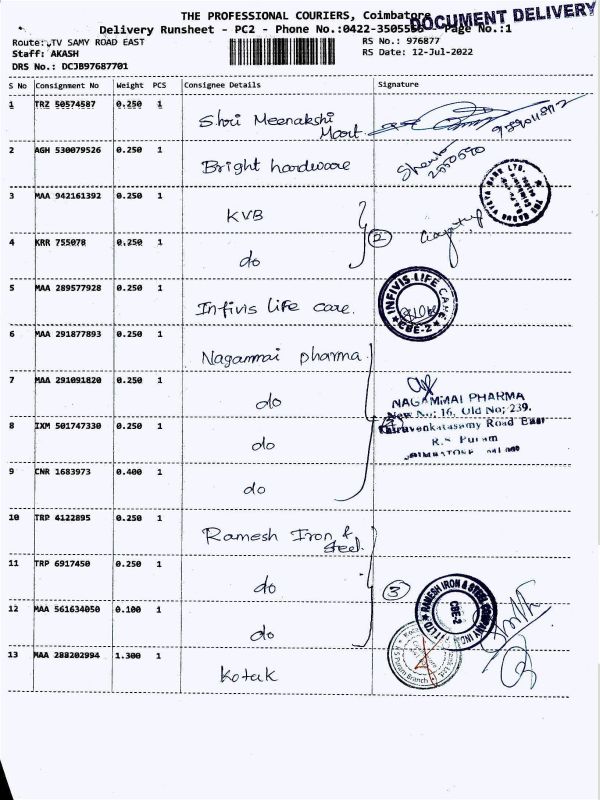 THE PROFESSIONAL COURIERS, Coimbatore
DOCUMENT DELIVERY
Delivery Runsheet - PC2 - Phone No.:0422-3505555 Page No.:1
Route: TV SAMY ROAD EAST
RS No.: 976877
Staff: AKASH
RS Date: 12-Jul-2022
DRS No.: DCJB97687701
S No Consignment No Weight PCS Consignee Details Signature
1 TRZ 50574587 0.250 1 Shri Meenakshi
Mart.
2 AGH 530079526 0.250 1 Bright hardware
3 MAA 942161392 0.250 1 KVB
2
4 KRR 755078 0.250 1 do
5 MAA 289577928 0.250 1 Infivis life care.
INFIVIS LIFE CARE
CBE-2
6 MAA 291877893 0.250 1 Nagammai pharma
7 MAA 291091820 0.250 1 do
NAGAMMAI PHARMA
New No; 16, Old No; 239.
8 IXM 501747330 0.250 1 do
Thiruvenkatasamy Road East
R.S Puram
9 CNR 1683973 0.400 1 do
10 TRP 4122895 0.250 1 Ramesh Iron &
Steel.
11 TRP 6917450 0.250 1 do
3
RAMESH IRON & STEEL COMPANY INDIA P LTD
CBE-2
12 MAA 561634050 0.100 1 do
13 MAA 288202994 1.300 1 Kotak
R S Puram Branch